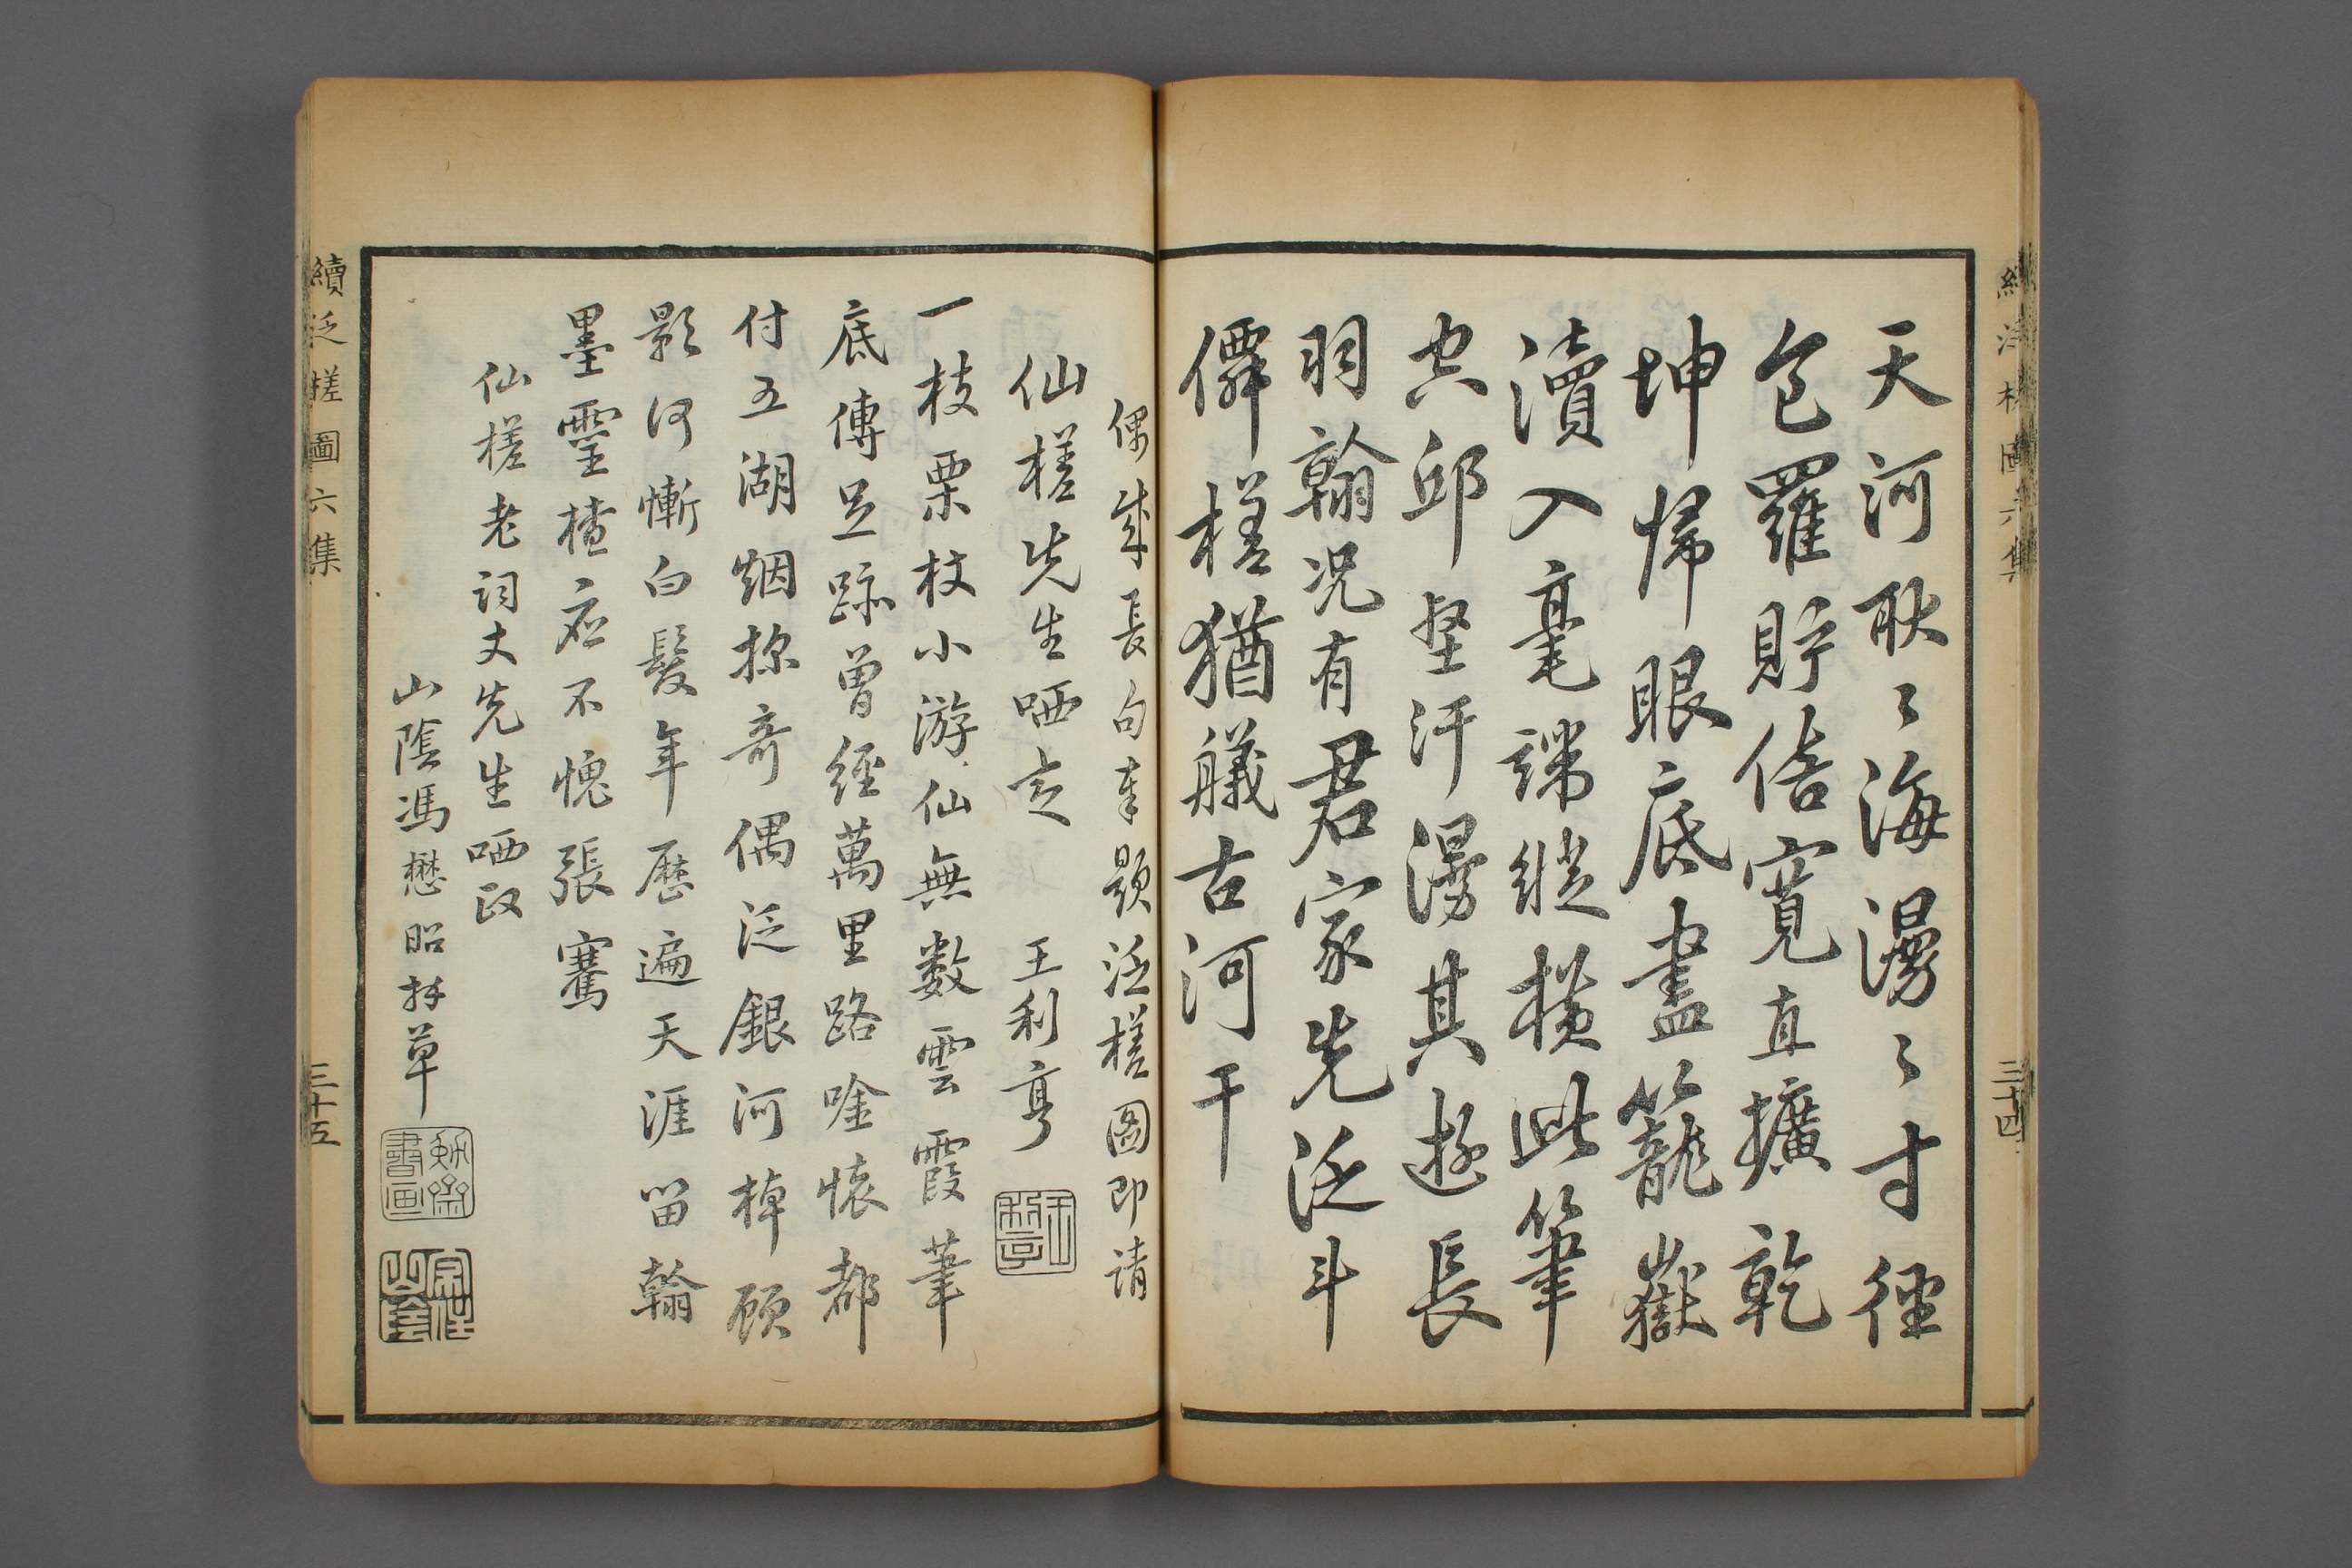 天河耿〻海漫〻寸徑
包羅貯倍寬直擴乾
坤歸眼底盡籠嶽
瀆入毫端縱橫此筆
空邱壑汗漫其遊長
羽翰況有君家先泛斗
僊槎猶艤古河干
偶成長句奉題泛槎圖即請
仙槎先生哂定 王利亨
一枝栗杖小游仙無數雲霞筆
底傳足跡曾經萬里路唫懷都
付五湖烟探奇偶泛銀河棹顧
影何慚白髮年歷遍天涯留翰
墨靈楂應不愧張騫
仙槎老詞丈先生哂政
山陰馮懋昭拜草
續泛槎圖六集
三十五
續泛槎圖六集
三十四